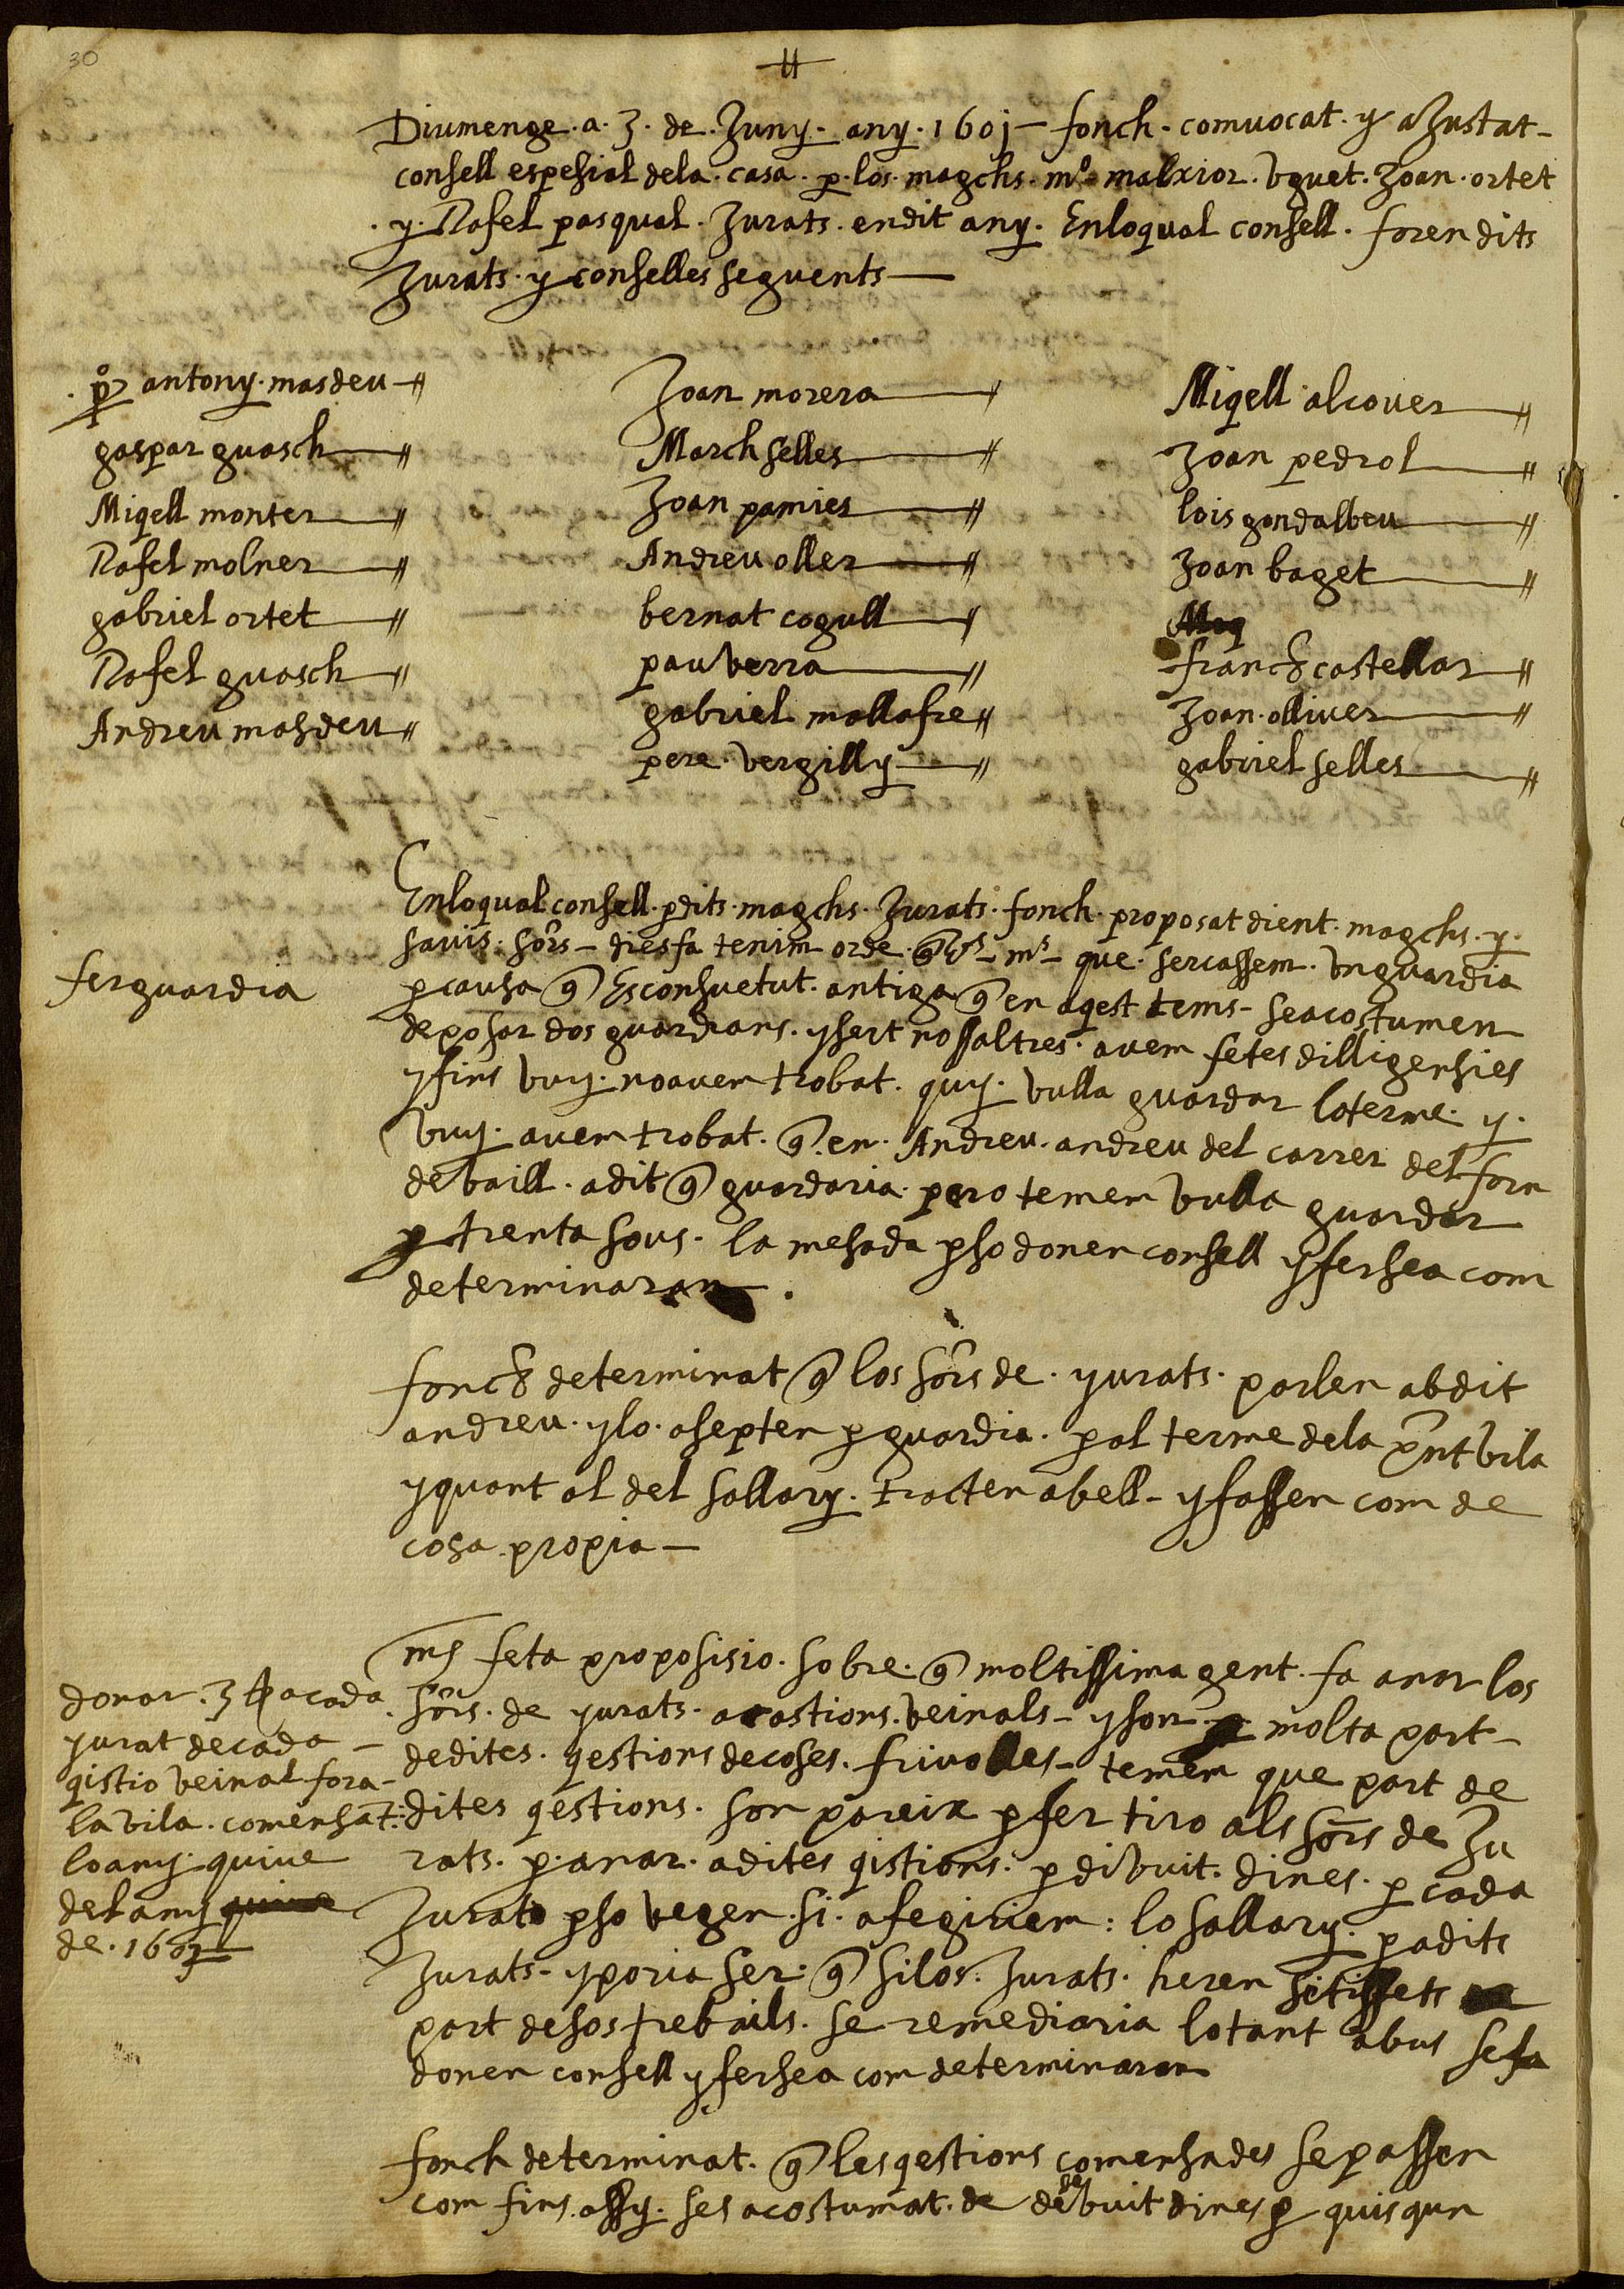 30
Diumenge . a . 3 . de . Juny . any . 1601 – fonch . comvocat . y aJustat –
consell espesial dela . casa . p . los . magchs . mº malxior . vguet . Joan . ortet
. y . Rafel pasqual . Jurats . endit any . Enloqual consell . foren dits
Jurats . y conselles seguents —
. pº antony . masdeu
gaspar guasch
Miqell monter
Rafel molner
gabriel ortet
Rafel guasch
Andreu masdeu
Joan morera
March selles
Joan pamies
Andreu oller
bernat cogull
pau verra
gabriel mallafre
pere . vergilly
Miqell alcover
Joan pedrol
lois gondalbeu
Joan baget
franch castellar
Joan . olliver
gabriel selles
Enloqual consell . pdits . magchs . Jurats . fonch . proposat dient . magchs . y .
savis . sors – dies fa tenim orde . q vs – ms – que . sercassem . vn guardia
ferguardia
p causa q Es consuetut . antiga q en aqest tems – se acostumen
deposar dos guardians . y sert nosaltres . avem fetes dilligensies
y fins vuy . no avem trobat . quy . vulla guardar loterme . y .
vuy . avem trobat . q . en . Andreu . andreu del carrer del forn
de vaill . adit q guardaria . pero temem vulla guardar
p trenta sous . la mesada pso donen consell y fersea com
determinaran .
fonch determinat q los sors de . yurats . parlen abdit
andreu . y lo . asepten p guardia . p al terme dela pnt vila
y quant al del sallary . tracten abell – y fassen com de
cosa . propia –
ms feta proposisio . sobre . q moltissima gent . fa anar los
sors . de yurats . a castions . veinals – y son molta part –
dedites . qestions de coses . frivolles – temem que part de
dites qestions . son pareix p fer tiro als sors de Ju
rats . p . anar . adites qistions . p divuit . dines . p cada
Jurat pso vegen . si . afegiriem : lo sallary . p adits
Jurats – y poria ser . q silos . Jurats . heren setisfets
part de sos trebails . se remediaria lo tant abus se fa
donen consell y fersea com determinaran
donar . 3 a cada
yurat de cada –
qistio veinal fora –
la vila . comensat :
lo any . quive
del any quive
de . 1601
fonch determinat . q les qestions comensades se passen
com fins . assy . ses acostumat . de de vuit dines p quisqun